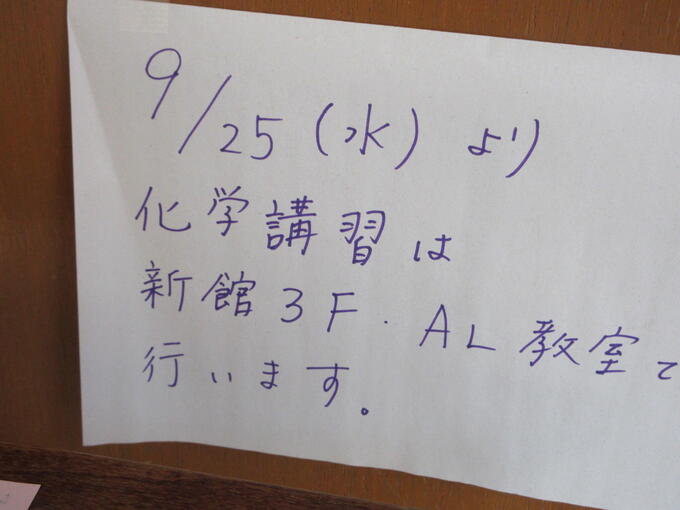 9/25(水)より
化学講習は
新館3F・AL教室で
行います。